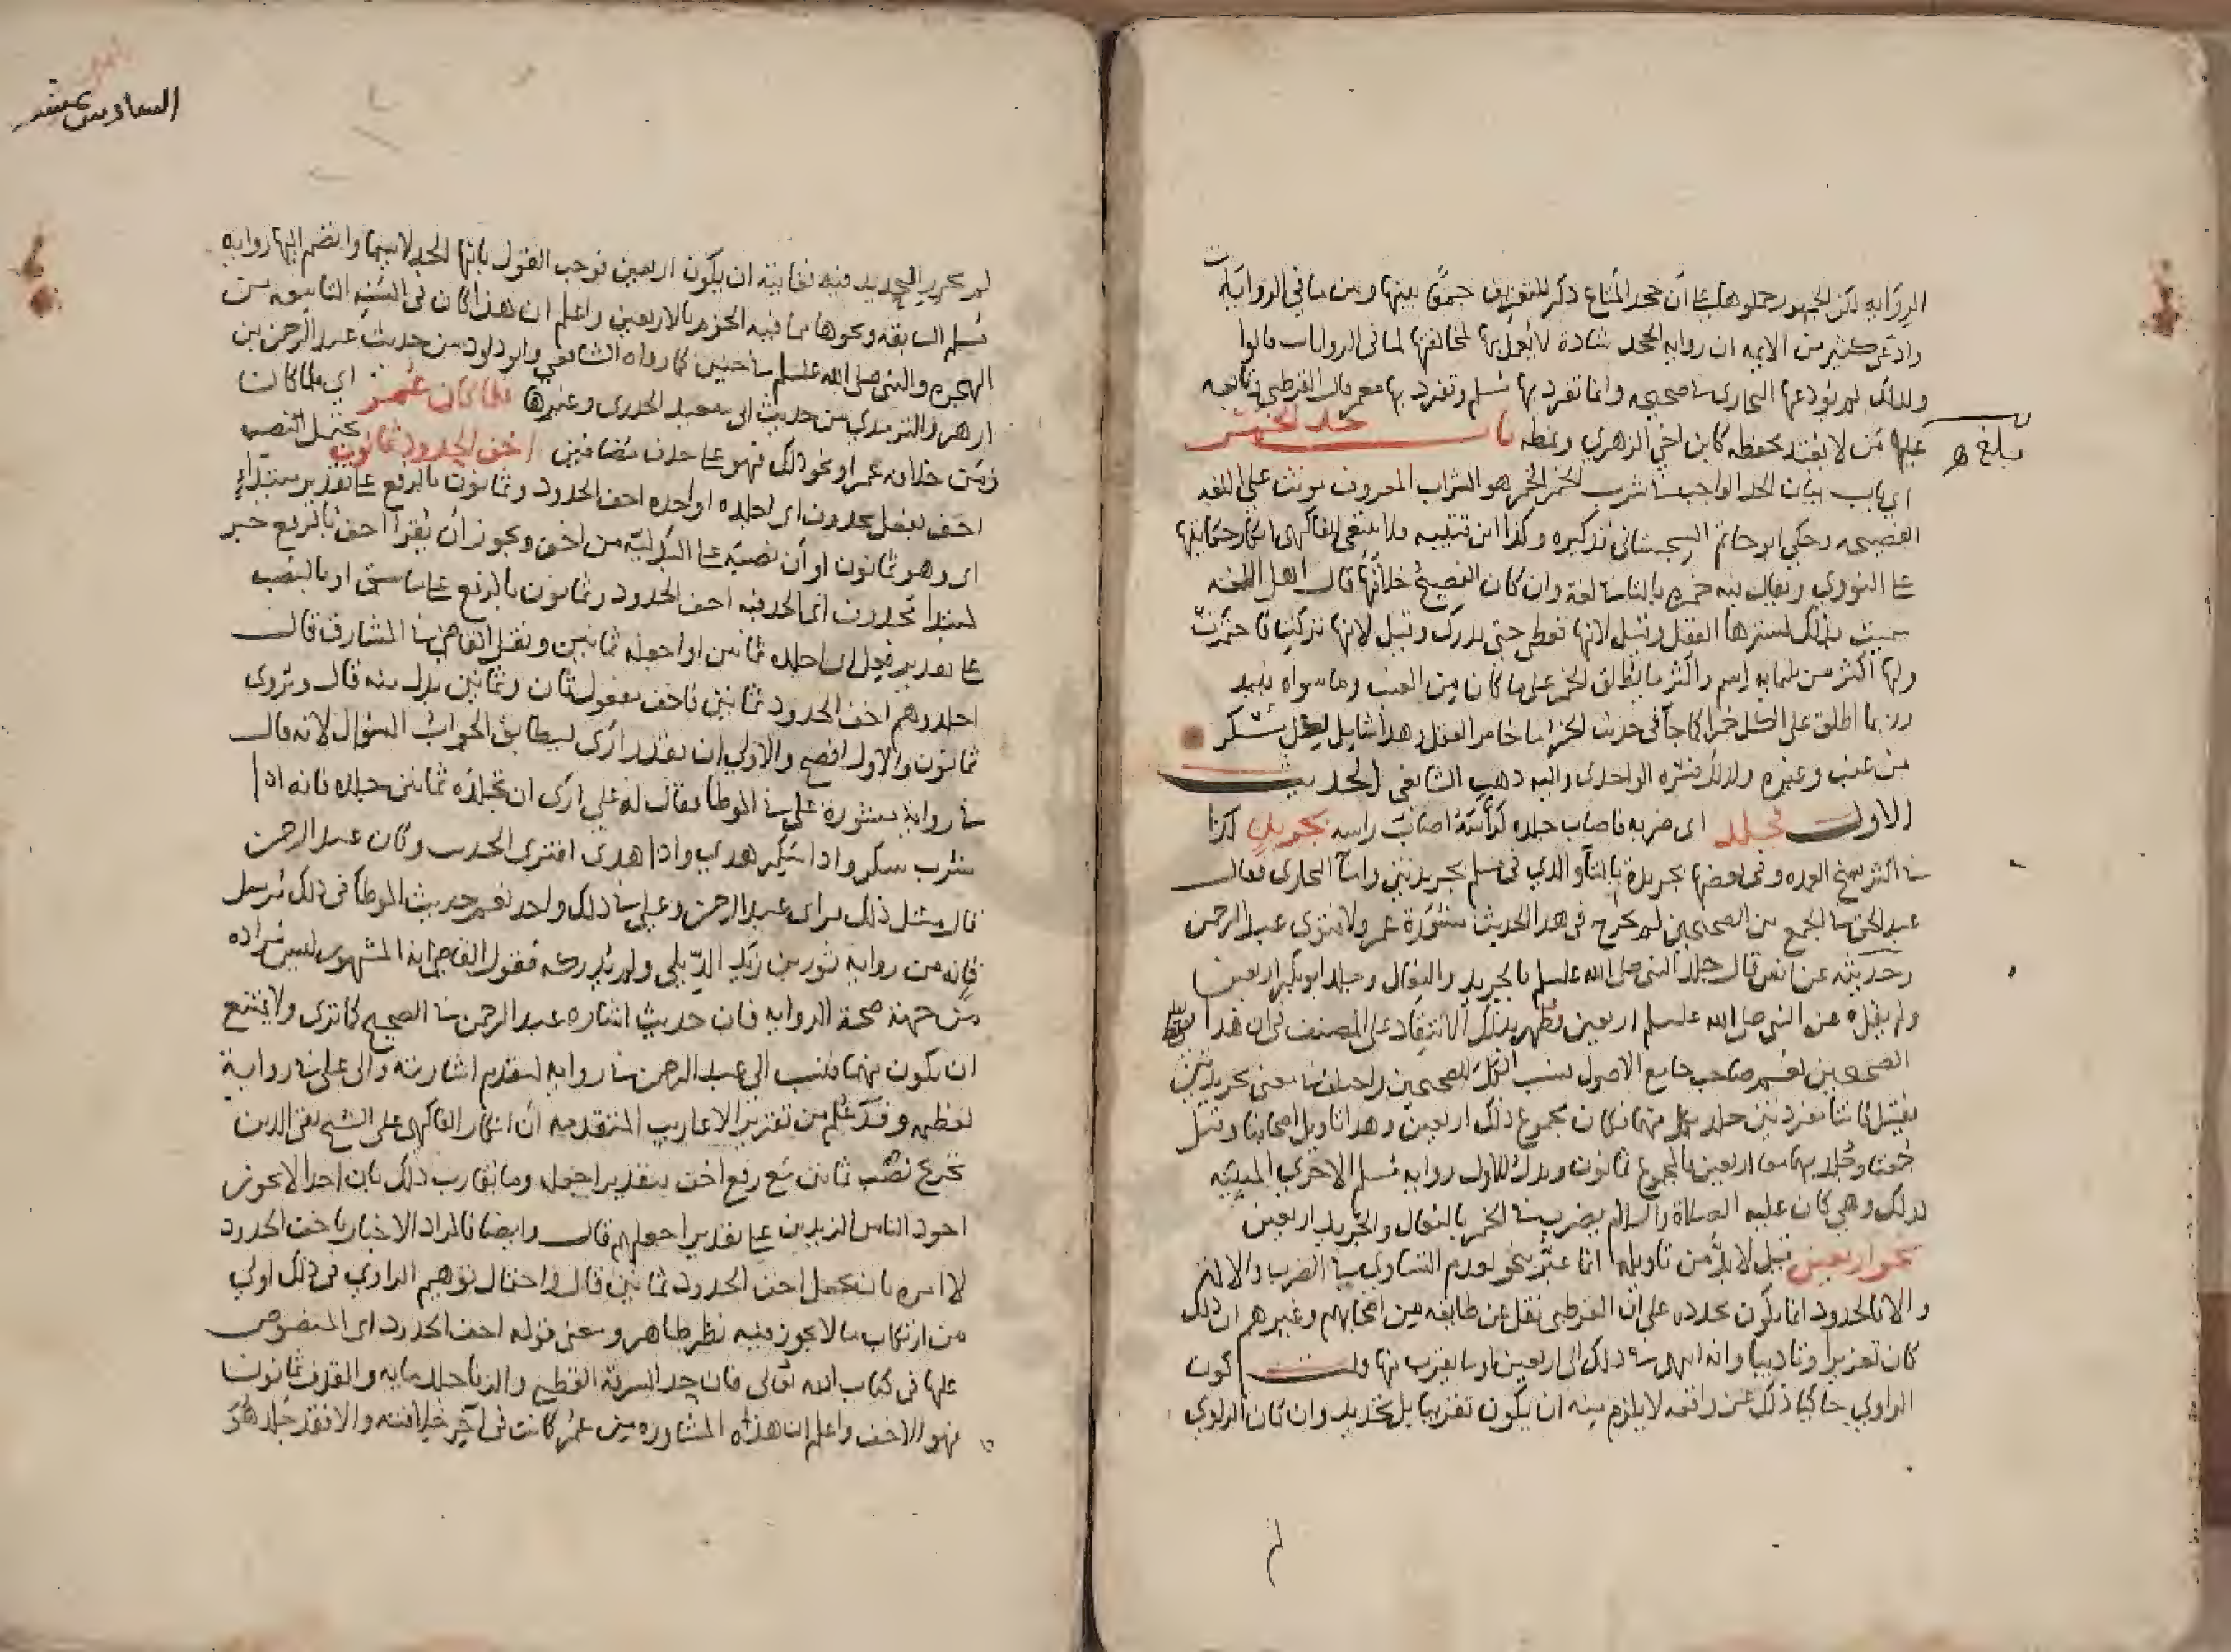 الرواية لكن الجمهور حملوها على أن جحد المتاع ذكر للتعريف جمعًا بينها وبين باقي الروايات
وادعى كثير من الايمه ان رواية الجحد شاذة لا يعمل بها لمخالفتها لباقي الروايات قالوا
ولذلك لم يودعها البخاري في صحيحه وانما تفرد بها مسلم وتفرد بها معمر قال القرطبي وتابعه
عليها من لا يقتدى بحفظه كابن اخي الزهري ونمطه باب حد الخمر
بلغ
اي باب بيان الحد الواجب في شرب الخمر الخمر هو الشراب المعروف مونث على اللغه
الفصيحه وحكي ابو حاتم السجستاني تذكيره وكذا ابن قتيبه فلا ينبغي للفاكهي انكار حكايتها
على النووي ويقال فيه خمرة بالتاء في لغة وان كان الفصيح خلافها قال اهل اللغه
سميت بذلك لسترها العقل وقيل لانها تغطى حتى تدرك وقيل لانها تركت فاختمرت
ولها اكثر من ثلثمايه اسم واكثر ما يطلق الخمر على ما كان من العنب وما سواه نبيذ
وربما اطلق على الكل خمرا كما جآ في حديث الخمر ما خامر العقل وهذا شامل لكل مسكر
من عنب وغيره ولذلك فسره الواحدي واليه ذهب الشافعي الحديث
الاول فجلد اي ضربه فاصاب جلده كرأسته اصاب راسه بجريدة كذا
في اكثر نسخ العمده وفي بعضها بجريدة بالتآ والذي في مسلم بجريدتين واما البخاري فقال
عبد الحق في الجمع بين الصحيحين لم يخرج في هذا الحديث مشورة عمر ولا فتوى عبد الرحمن
وحديثه عن انس قال جلد النبي صلى الله عليه وسلم بالجريد والنعال وجلد ابو بكر اربعين
ولم يقل عن النبي صلى الله عليه وسلم اربعين فظهر بذلك الانتقاد على المصنف في ان هذا لفظ
الصحيحين نعم صاحب جامع الاصول نسب الكل للصحيحين واختلف في معنى بجريدتين
فقيل كانتا مفردتين جلد بكل منهما فكان مجموع ذلك اربعين وهذا تاويل اصحابنا وقيل
جمعتا وجلد بهما معا اربعين فالمجموع ثمانون ويدل للاول رواية مسلم الاخرى المبينه
لذلك وهي كان عليه الصلاة والسلام يضرب في الخمر بالنعال والجريد اربعين
نحو اربعين قيل لا بد من تاويله انما عبر بنحو لعدم التساوي في الضرب والالم
والا فالحدود انما تكون محدده على ان القرطبي نقل عن طايفه من اصحابهم وغيرهم ان ذلك
كان تعزيرا وتاديبا وانه انتهى في ذلك الى اربعين او ما يقرب منها ولـت كون
الراوي حاكيا ذلك عن واقعه لا يلزم منه ان يكون تقريبا بل تحديد وان كان الراوي
السادس عشر
لم يحرر التحديد فيه فغايته ان يكون اربعين فوجب القول بانها الحد لا سيما وانضم اليها رواية
مسلم السابقه ونحوها مما فيه الجزم بالاربعين واعلم ان هذا كان في السنه الثامنه من
الهجرة والنبي صلى الله عليه وسلم في حنين كما رواه الشافعي وابو داود من حديث عبد الرحمن بن
ازهر والترمذي من حديث ابي سعيد الخدري وغيرها فلما كان عمر اي فلما كان
زمن خلافة عمر او نحو ذلك فهو على حذف مضافين اخف الحدود ثمانون يحتمل نصب
اخف بفعل محذوف اي اجلده او احده اخف الحدود وثمانون بالرفع على تقدير مبتدا
اي وهو ثمانون او ان نصبه على البدلية من اخف ويجوز ان يقرا اخف بالرفع خبر
لمبتدا محذوف اي الحد فيه اخف الحدود وثمانون بالرفع على ما سبق او بالنصب
على تقدير فعل اي اجلده ثمانين او اجعله ثمانين ونقل القاضي في المشارق قال
اجلدوهم اخف الحدود ثمانين فاخف مفعول ثان وثمانين بدل منه قال ويروى
ثمانون والاول افصح والاولى ان يقدر ارى ليطابق الجواب السؤال لانه قال
في رواية مشورة علي في الموطا فقال له علي ارى ان تجلده ثمانين جلده فانه اذا
شرب سكر واذا سكر هذى واذا هذى افترى الحديث وكان عبد الرحمن
قال مثل ذلك فراى عبد الرحمن وعلي في ذلك واحد نعم حديث الموطا في ذلك مرسل
فانه من رواية ثور بن زيد الديلي ولم يدركه فقول القاضي انه المشهور ليس مراده
من جهة صحة الرواية فان حديث اشارة عبد الرحمن في الصحيح كما ترى ولا يمتنع
ان يكون منهما فنسب الى عبد الرحمن في رواية لتقدم اشارته والى علي في رواية
لفظه وقد علم من تقرير الاعاريب المتقدمه ان انكار الفاكهي على الشيخ تقي الدين
تخرج نصب ثمانين مع رفع اخف بتقدير اجعله وما يقارب ذلك بان احدا لا يجوز
اجود الناس الزيدين على تقدير اجعلهم قال وايضا فالمراد الاخبار باخف الحدود
لا امره بان يجعل اخف الحدود ثمانين قال واحتمال توهيم الراوي في ذلك اولى
من ارتكاب ما لا يجوز فيه نظر ظاهر ومعنى قوله اخف الحدود اي المنصوص
عليها في كتاب الله تعالى فان حد السرقة القطع والزنا جلد مايه والقذف ثمانون
فهو الاخف واعلم ان هذه المشاوره من عمر كانت في آخر خلافته والا فقد جلد هو